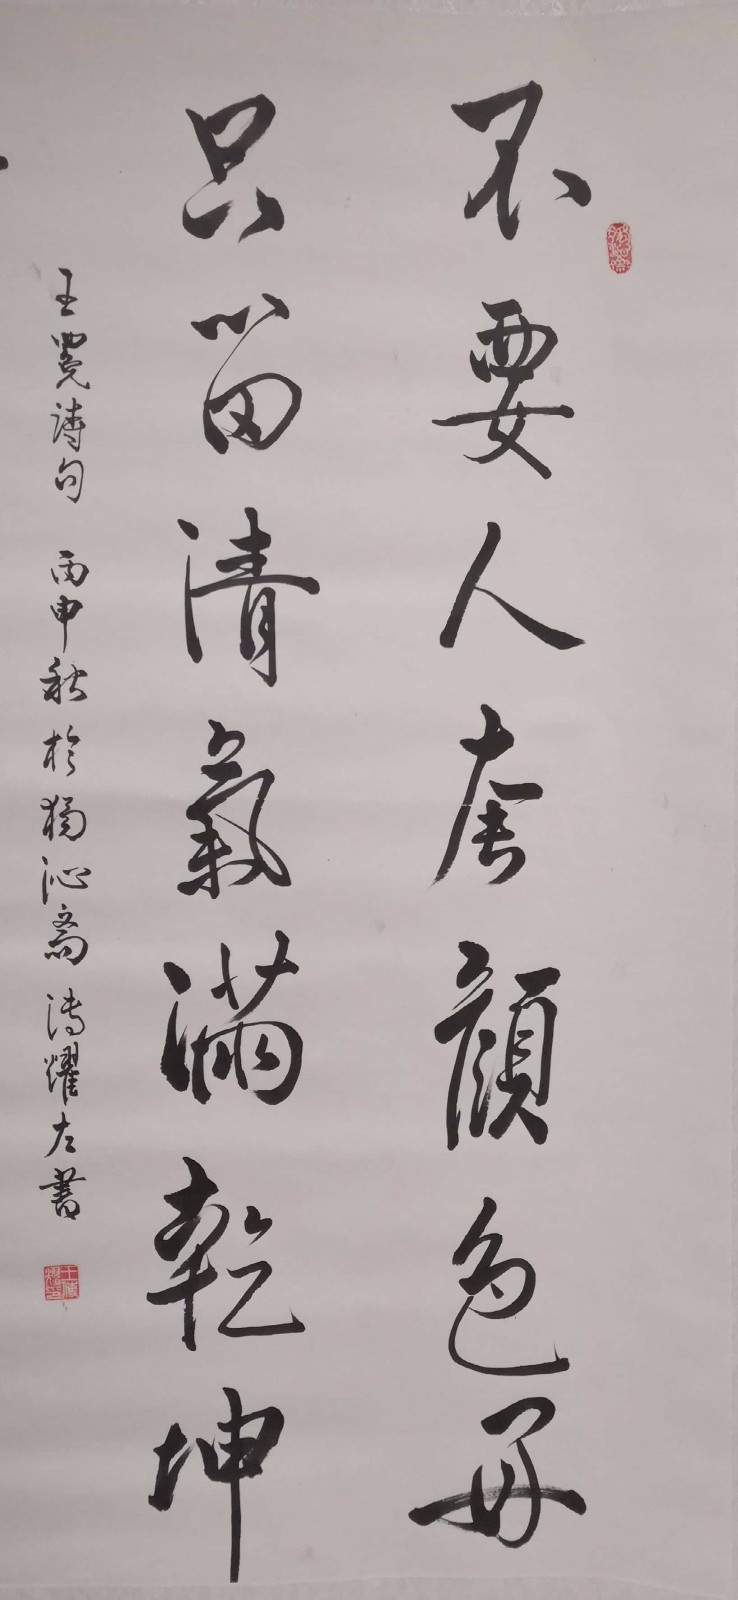 不要人夸顏色好
只留清氣滿乾坤
王冕詩句 丙申秋於沁斋 耀左書